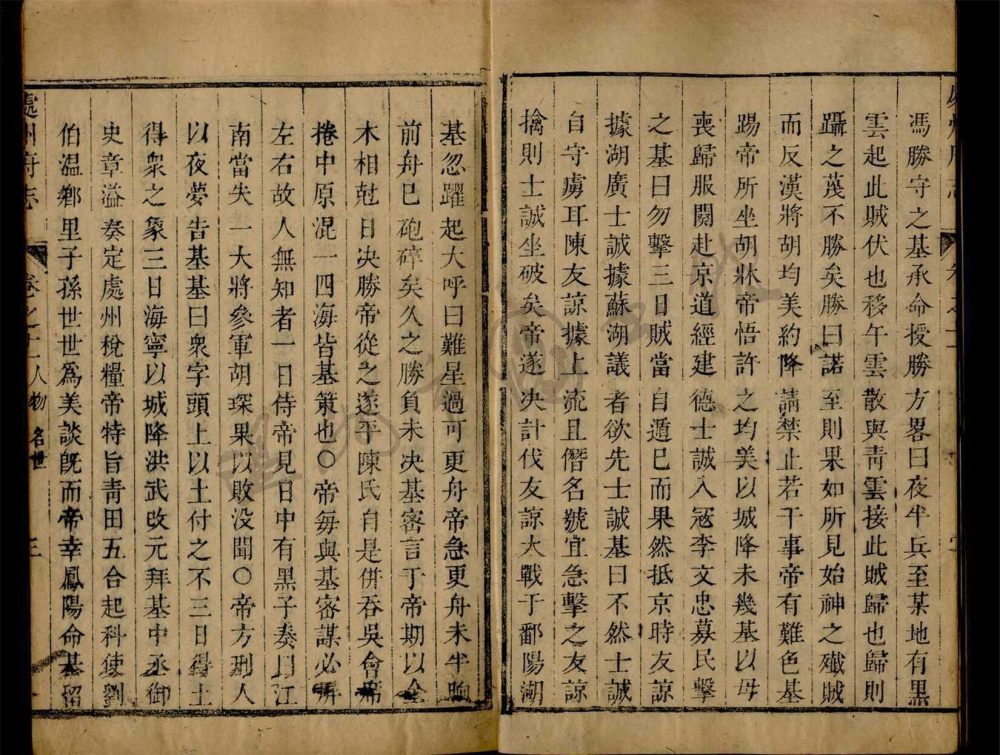 馮勝守之基承命授勝方畧曰夜半兵至某地有黑
雲起此賊伏也移午雲散與青雲接此賊歸也歸則
躡之蔑不勝矣勝曰諾至則果如所見始神之殲賊
而反漢將胡均美約降請禁止若干事帝有難色基
踢帝所坐胡牀帝悟許之均美以城降未幾基以母
喪歸服闋赴京道經建德士誠入寇李文忠募民擊
之基曰勿擊三日賊當自遁已而果然抵京時友諒
據湖廣士誠據蘇湖議者欲先士誠基曰不然士誠
自守虜耳陳友諒據上流且僭名號宜急擊之友諒
擒則士誠坐破矣帝遂决計伐友諒大戰于鄱陽湖
基忽躍起大呼曰難星過可更舟帝急更舟未半晌
前舟已砲碎矣久之勝負未决基審言于帝期以金
木相尅日决勝帝從之遂平陳氏自是併吞吳會席
捲中原混一四海皆基策也○帝每與基審謀必屏
左右故人無知者一日侍帝見日中有黑子奏曰江
南當失一大將參軍胡琛果以敗没聞○帝方刑人
以夜夢告基基曰衆字頭上以土付之不三日得土
得衆之象三日海寧以城降洪武改元拜基中丞御
史章溢奏定處州稅糧帝特旨青田五合起科使劉
伯温鄉里子孫世世爲美談旣而帝幸鳳陽命基留
處州府志
卷之十二人物 名世
三